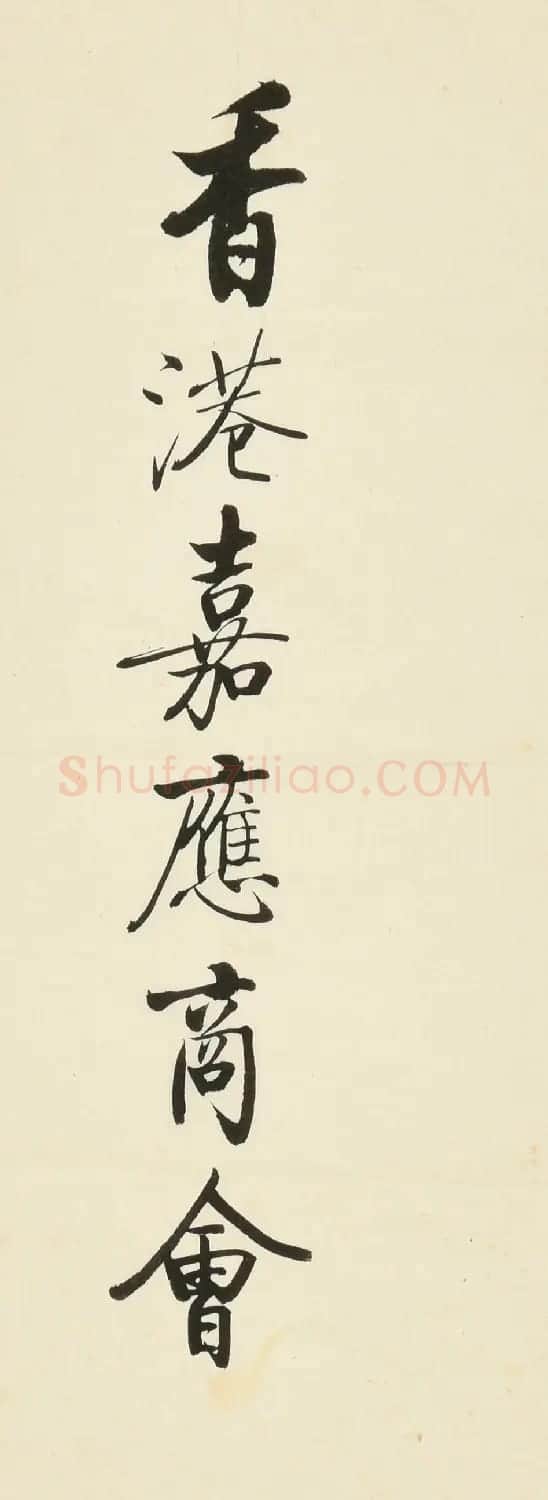 香港嘉應商會
Shufaziliao.COM